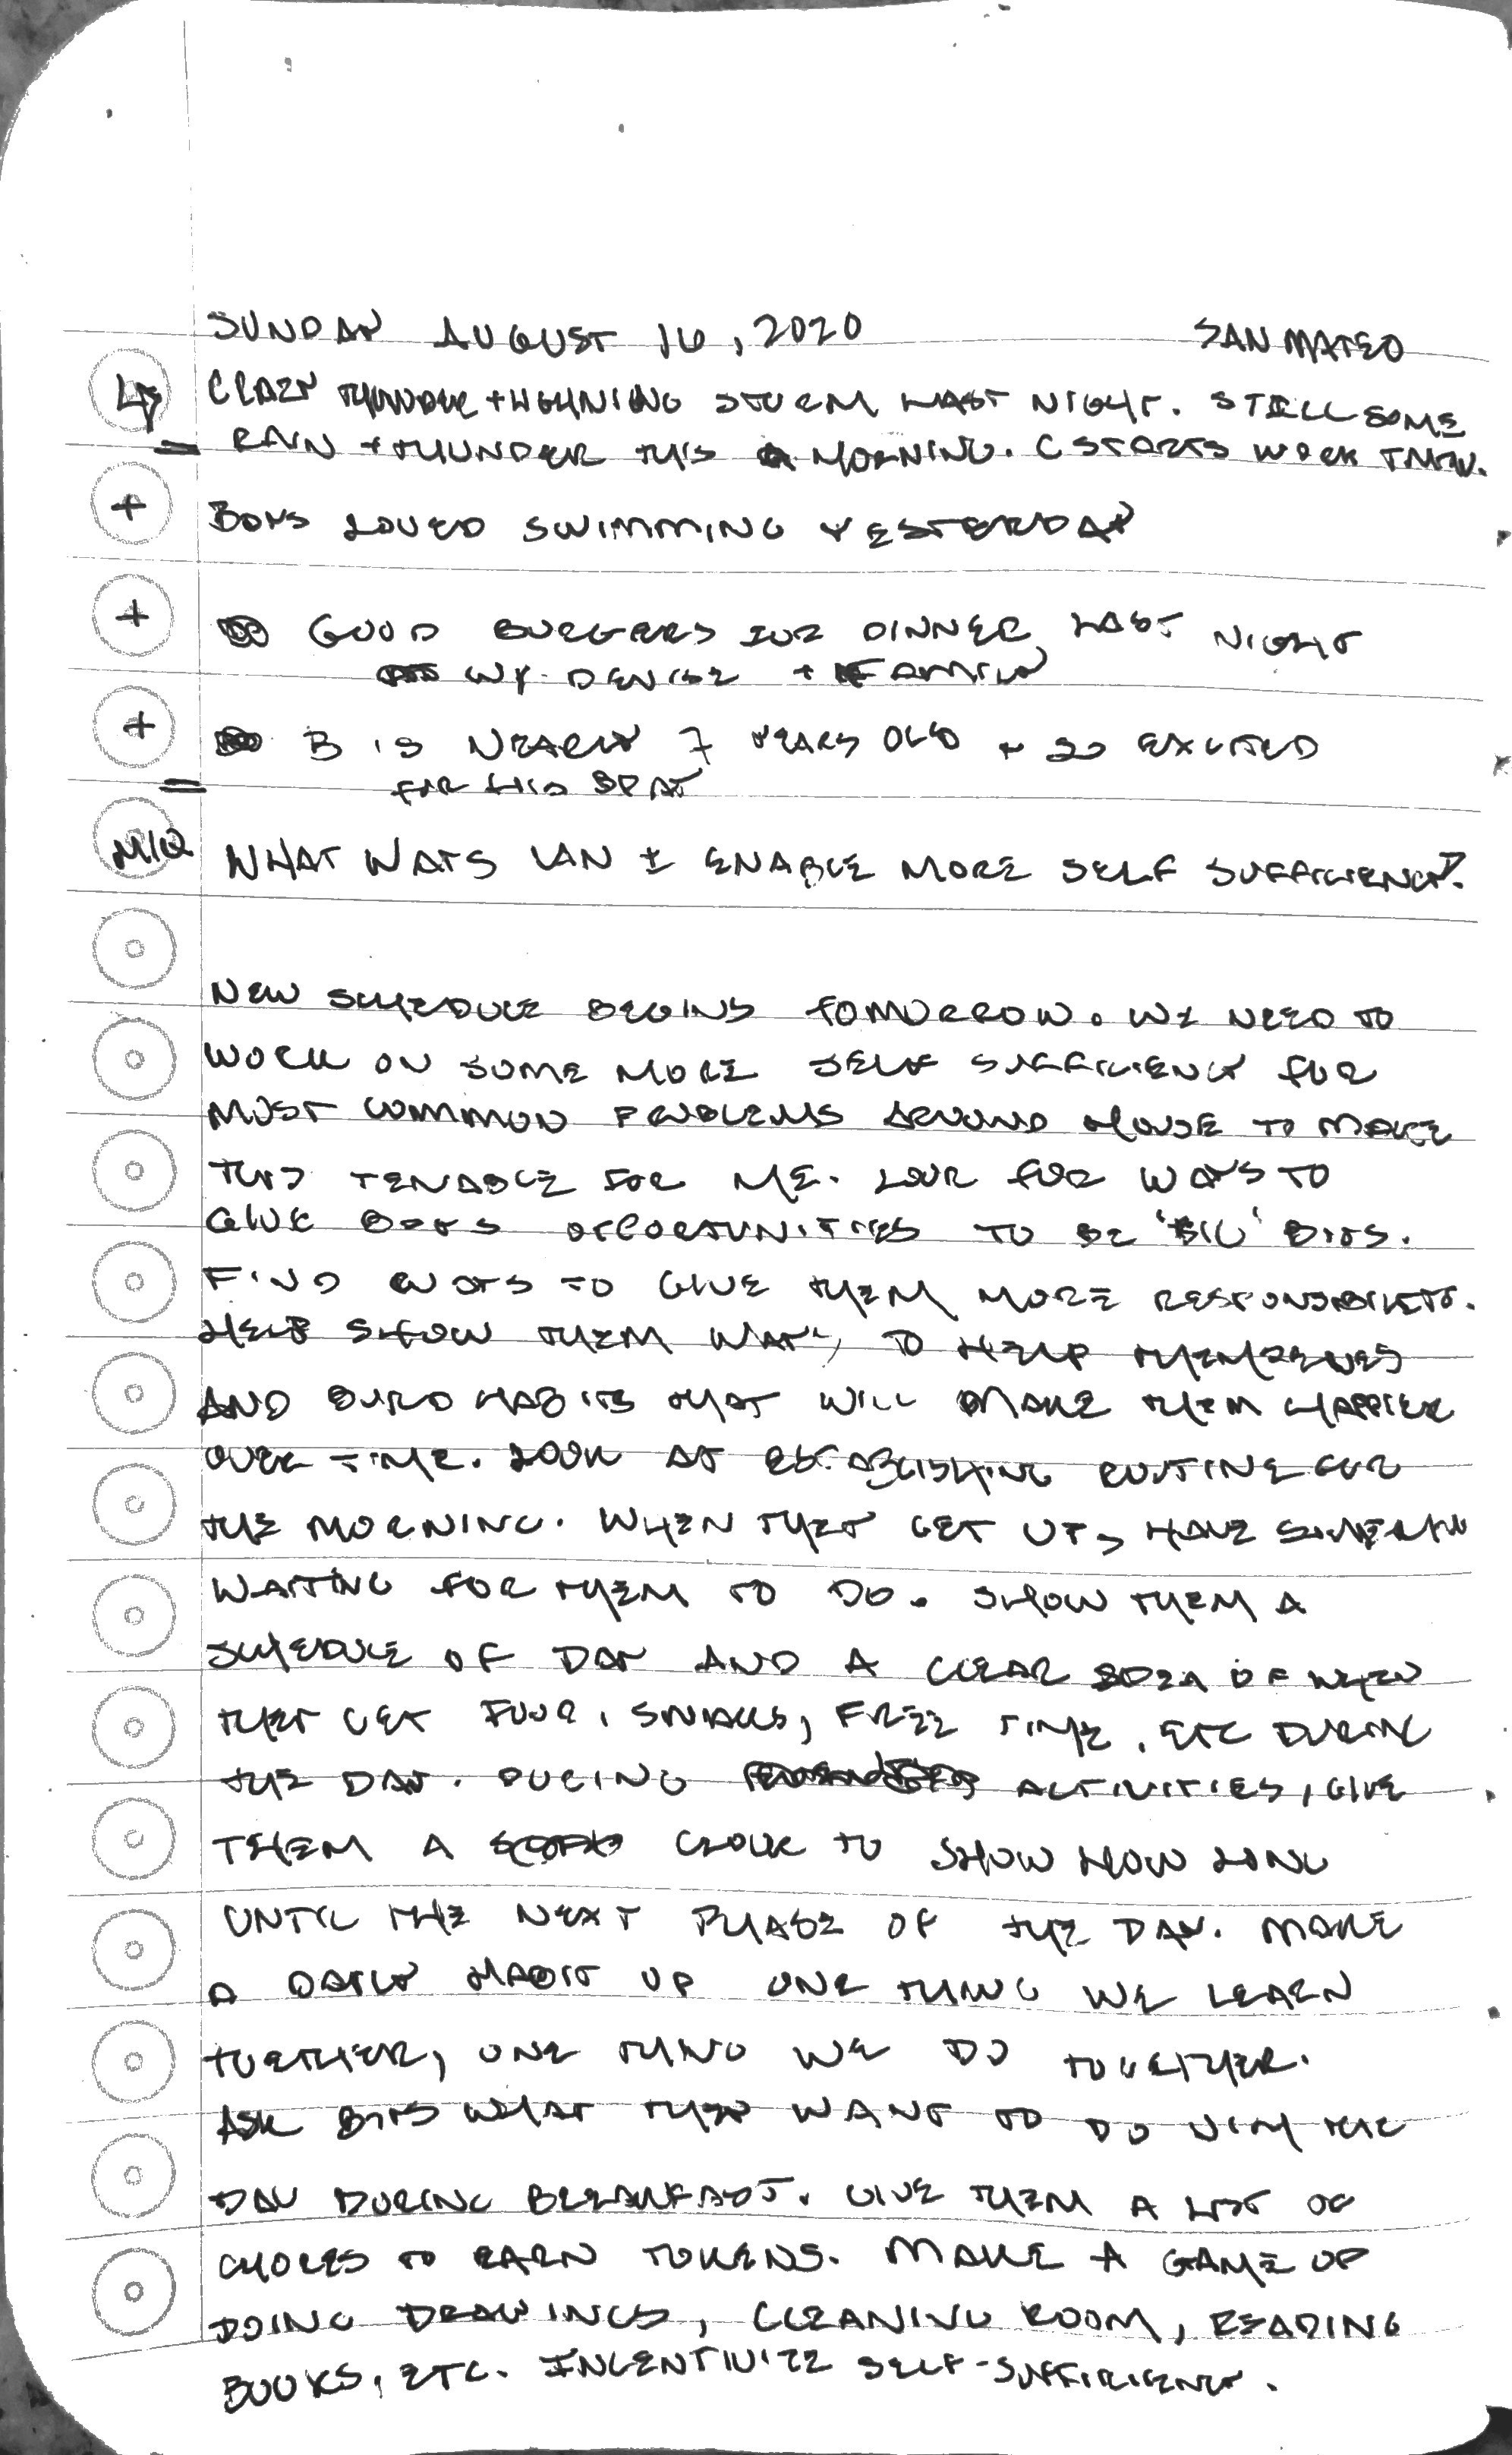 SUNDAY AUGUST 16, 2020 SAN MATEO
LY CRAZY THUNDER + LIGHTNING STORM LAST NIGHT. STILL SOME
= RAIN + THUNDER THIS MORNING. C STARTS WORK TMRW.
+ BOYS LOVED SWIMMING YESTERDAY
+ GOOD BURGERS FOR DINNER LAST NIGHT
W/ DENISE + FAMILY
+ B IS NEARLY 7 YEARS OLD + SO EXCITED
= FOR HIS BDAY
MIQ WHAT WAYS CAN I ENABLE MORE SELF SUFFICIENCY?
NEW SCHEDULE BEGINS TOMORROW. WE NEED TO
WORK ON SOME MORE SELF SUFFICIENCY FOR
MOST COMMON PROBLEMS AROUND HOUSE TO MAKE
THIS TENABLE FOR ME. LOOK FOR WAYS TO
GIVE BOYS OPPORTUNITIES TO BE 'BIG' BOYS.
FIND WAYS TO GIVE THEM MORE RESPONSIBILITY.
HELP SHOW THEM WAYS TO HELP THEMSELVES
AND BUILD HABITS THAT WILL MAKE THEM HAPPIER
OVER TIME. LOOK AT ESTABLISHING ROUTINE FOR
THE MORNING. WHEN THEY GET UP, HAVE SOMETHING
WAITING FOR THEM TO DO. SHOW THEM A
SCHEDULE OF DAY AND A CLEAR IDEA OF WHEN
THEY GET FOOD, SNACKS, FREE TIME, ETC DURING
THE DAY. DURING ACTIVITIES, GIVE
THEM A CLOCK TO SHOW HOW LONG
UNTIL THE NEXT PHASE OF THE DAY. MAKE
A DAILY HABIT OF ONE THING WE LEARN
TOGETHER, ONE THING WE DO TOGETHER.
ASK BOYS WHAT THEY WANT TO DO WITH THE
DAY DURING BREAKFAST. GIVE THEM A LIST OF
CHORES TO EARN TOKENS. MAKE A GAME OF
DOING DRAWINGS, CLEANING ROOM, READING
BOOKS, ETC. INCENTIVIZE SELF-SUFFICIENCY.